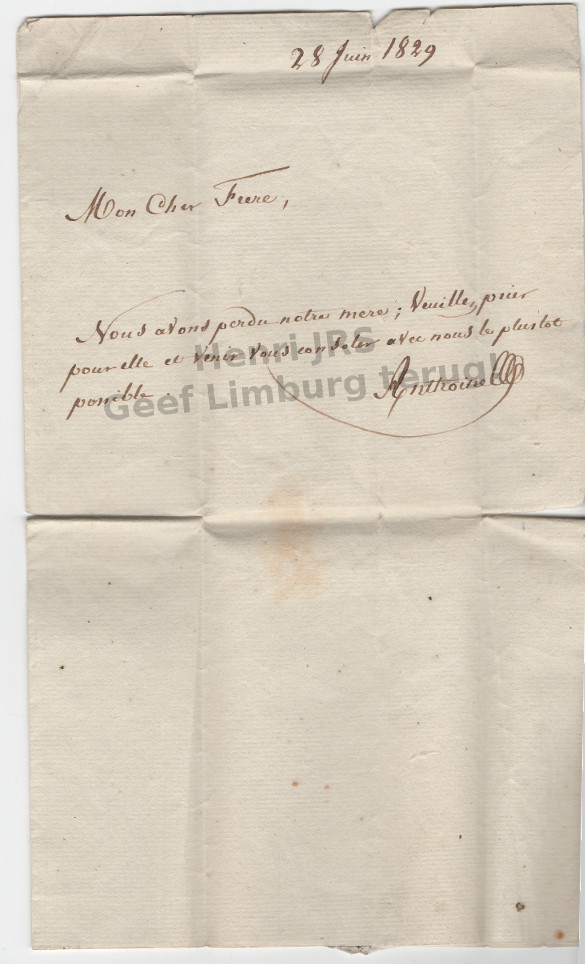 28 Juin 1829
Mon Cher Frere,
Nous avons perdu notre mere; Veuillez prier
pour elle et venir vous consoler avec nous le plustot
possible
Anthoine
Henri JRS
Geef Limburg terug!